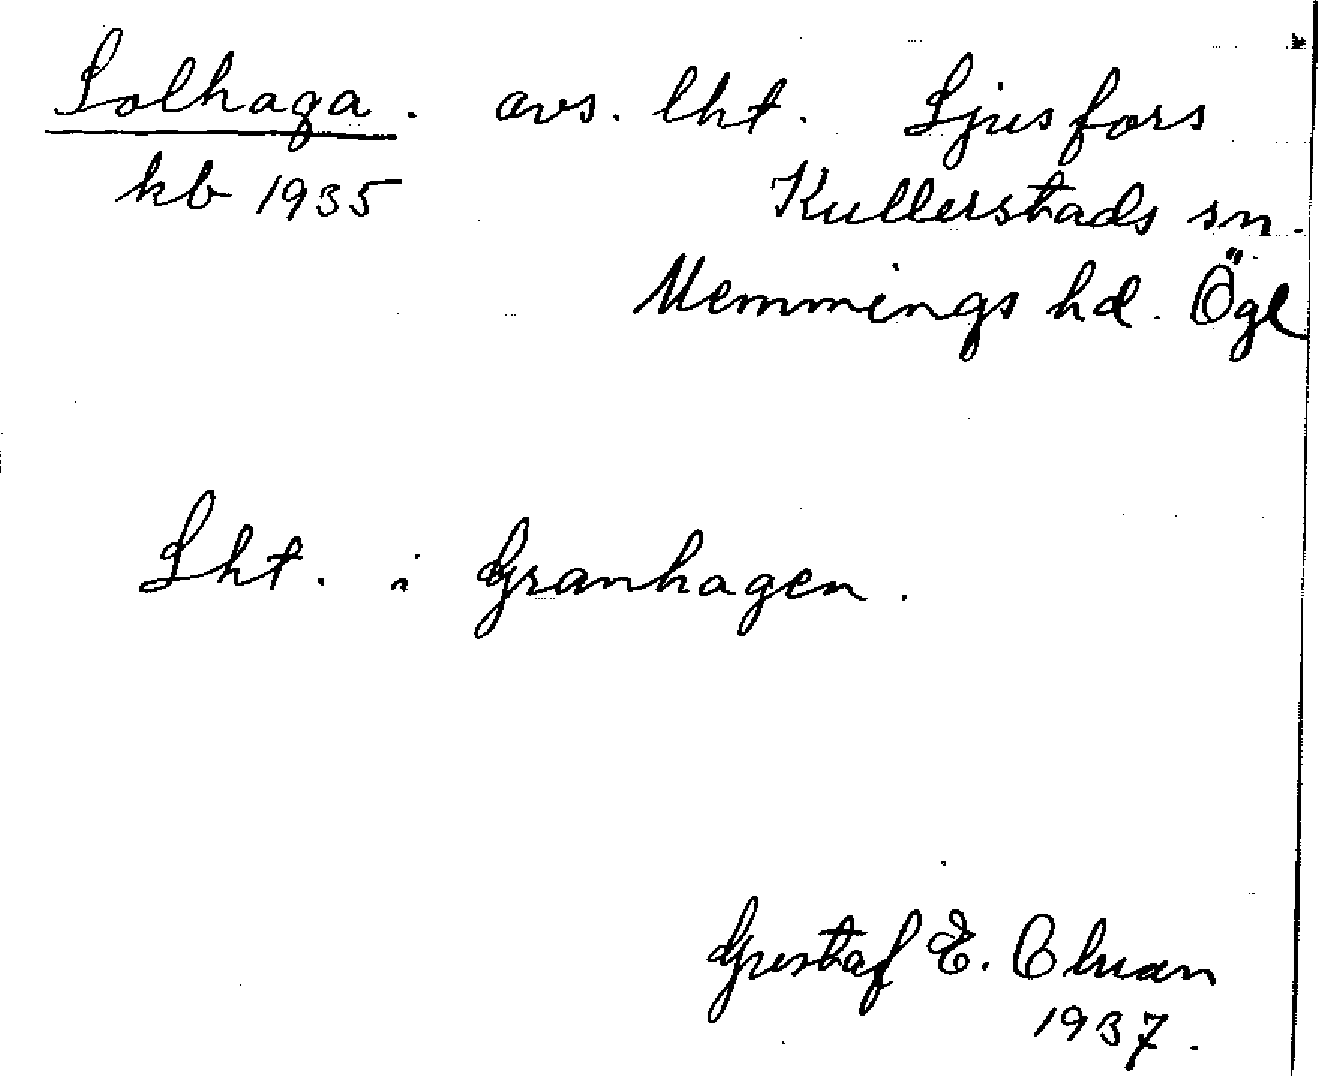 Solhaga. avs. lht. Ljusfors
kb 1935 Kullerstads sn.
Memmings hd. Ögl
Lht. i Granhagen.
Gustaf E.
1937.